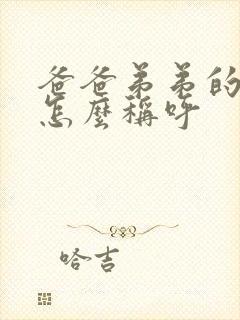 爸爸弟弟的
怎麼稱呼
哈吉